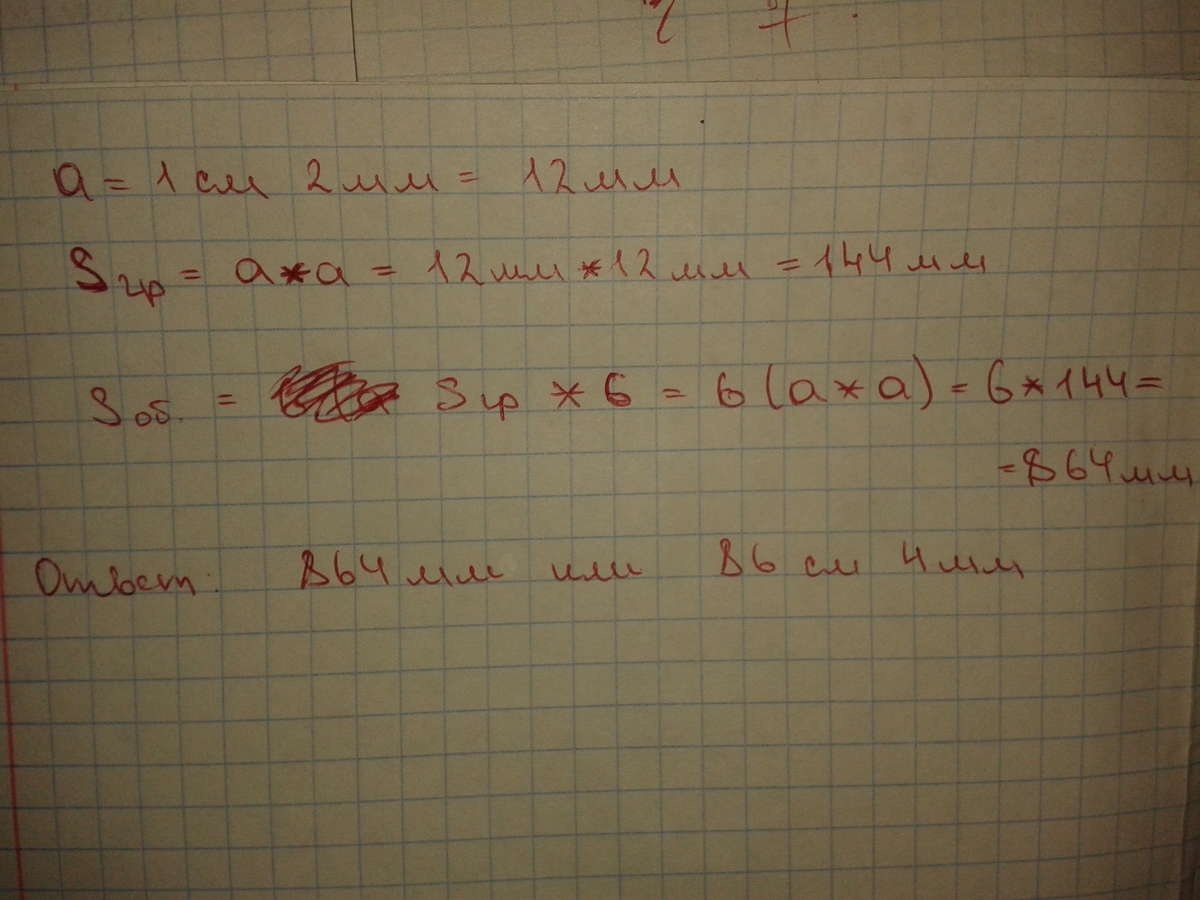 a = 1 см 2 мм = 12 мм
Sгр = a * a = 12 мм * 12 мм = 144 мм
Sоб. = Sгр * 6 = 6 (a * a) = 6 * 144 =
= 864 мм
Ответ: 864 мм или 86 см 4 мм